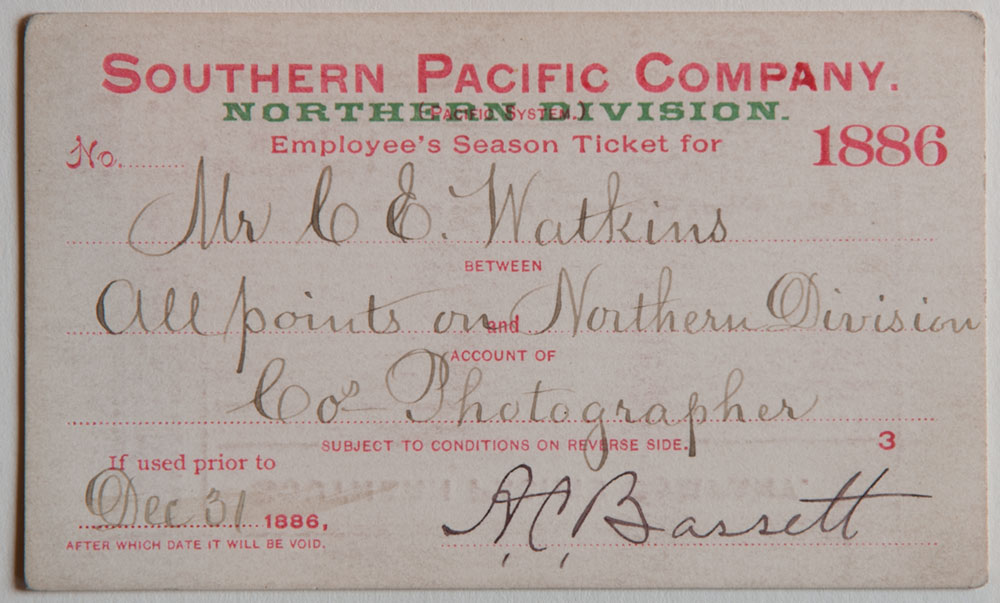 SOUTHERN PACIFIC COMPANY.
NORTHERN DIVISION.
(PACIFIC SYSTEM.)
No. Employee's Season Ticket for 1886
Mr C E. Watkins
BETWEEN
All points on and Northern Division
ACCOUNT OF
Cos Photographer
SUBJECT TO CONDITIONS ON REVERSE SIDE. 3
If used prior to
Dec 31 1886,
AFTER WHICH DATE IT WILL BE VOID.
A.C. Bassett